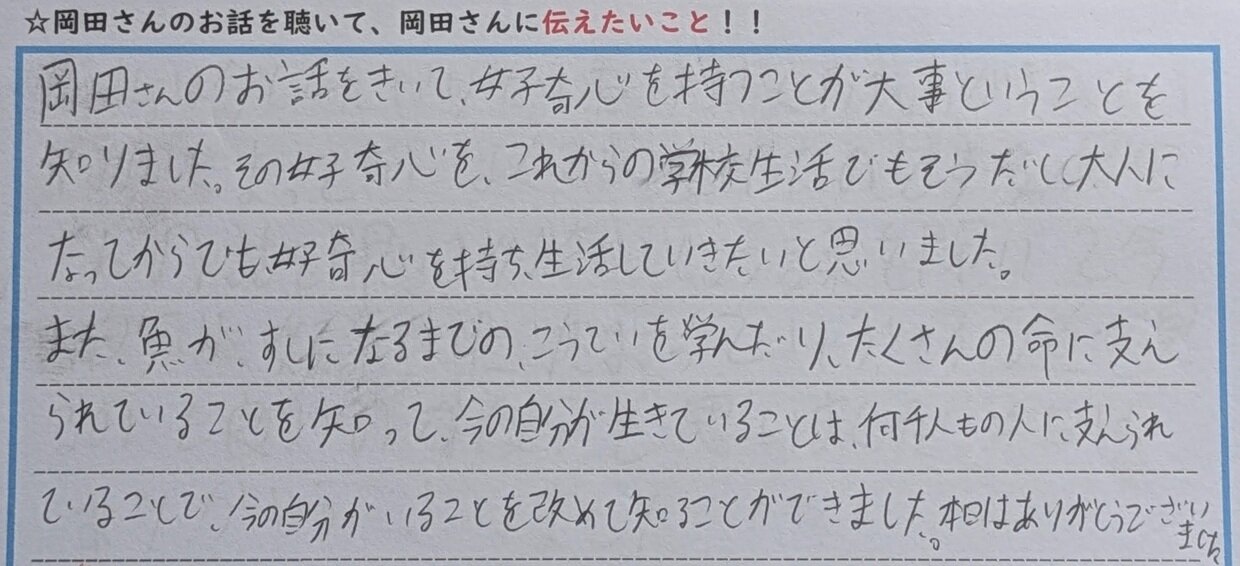 ☆岡田さんのお話を聴いて、岡田さんに伝えたいこと！！
岡田さんのお話をきいて、好奇心を持つことが大事ということを
知りました。その好奇心を、これからの学校生活でもそうだし、大人に
なってからでも好奇心を持ち、生活していきたいと思いました。
また、魚が、すしになるまでの、こうていを学んだり、たくさんの命に支え
られていることを知って、今の自分が生きていることは、何千人もの人に支えられ
ていることで、今の自分がいることを改めて知ることができました。本日はありがとうござい
ました